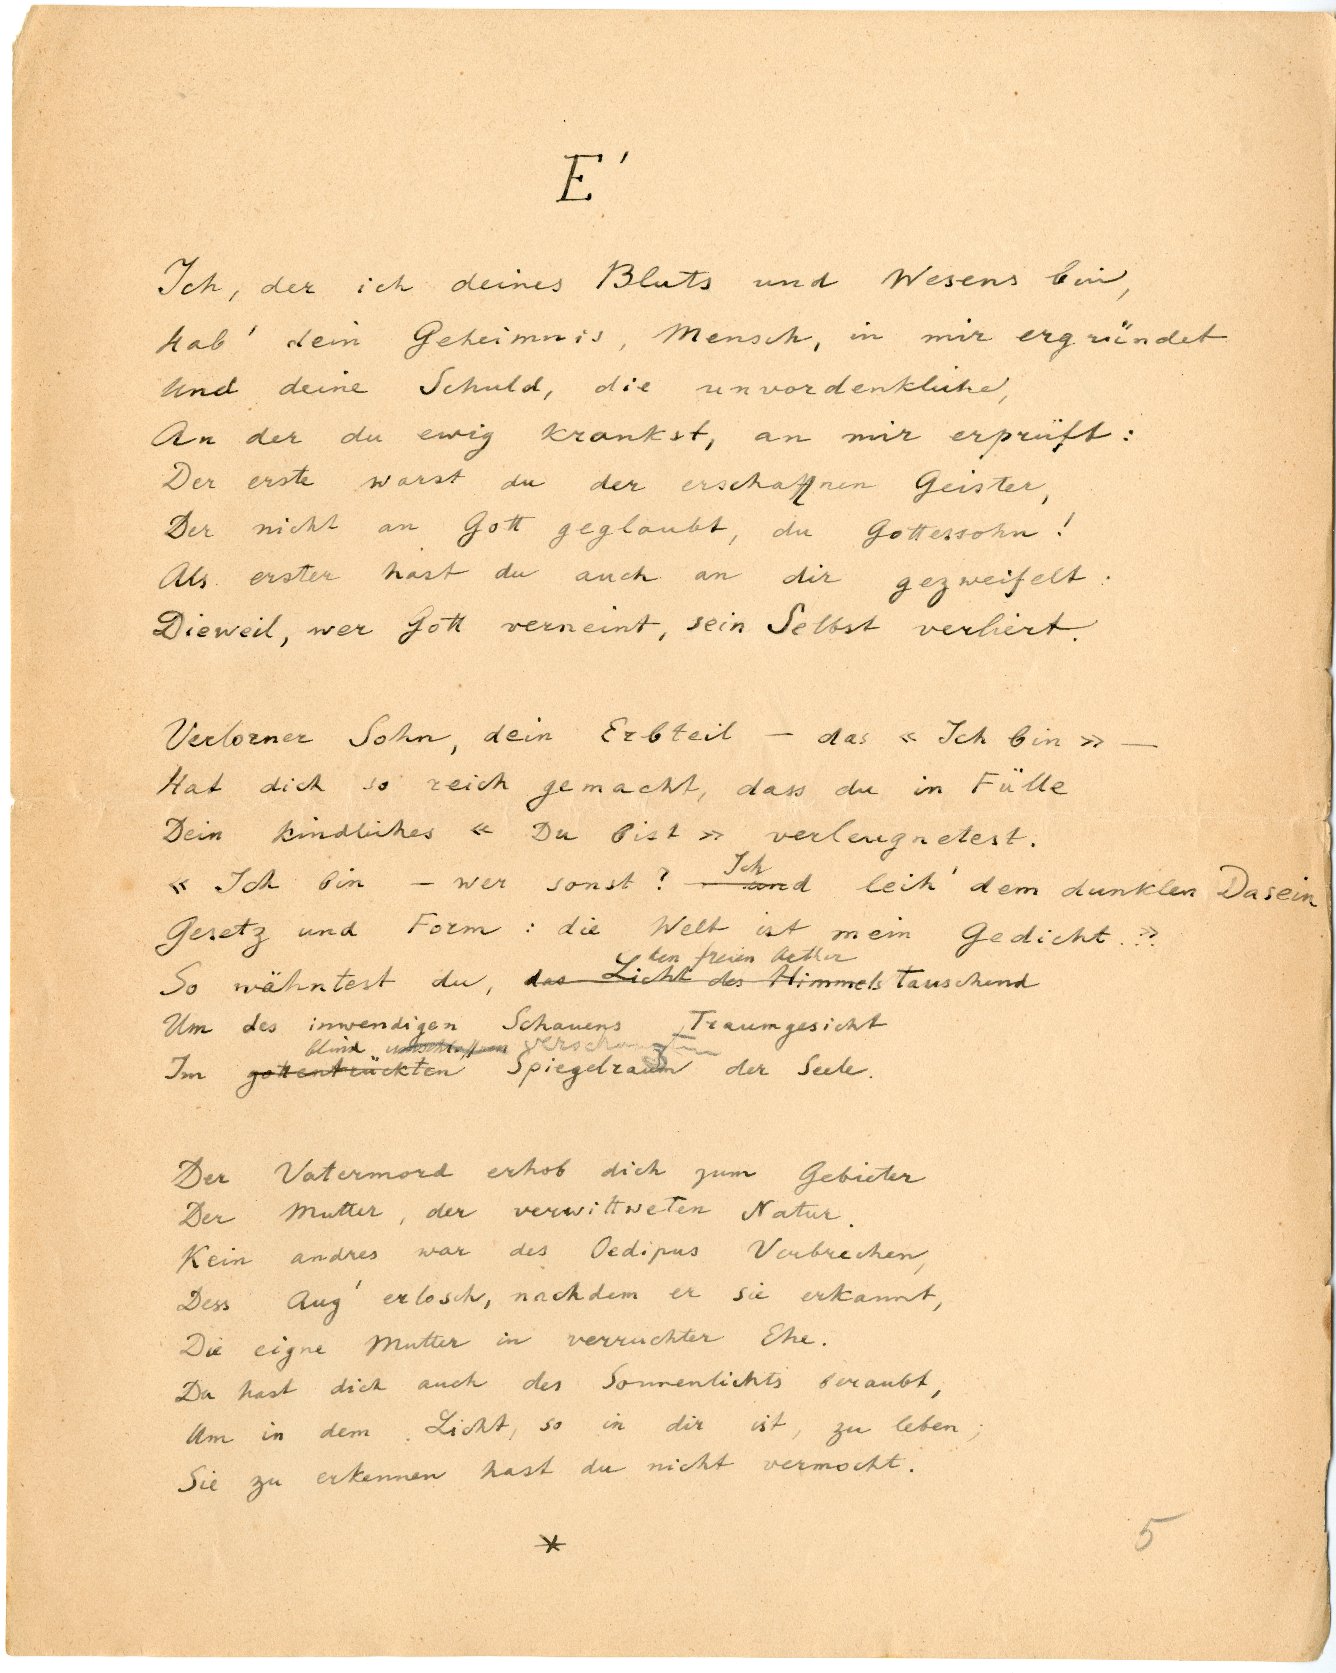 E'
Ich, der ich deines Bluts und Wesens bin,
Hab' dein Geheimnis, Mensch, in mir ergründet
Und deine Schuld, die unvordenkliche,
An der du ewig krankst, an mir erprüft:
Der erste warst du der erschaffnen Geister,
Der nicht an Gott geglaubt, du Gottessohn!
Als erster hast du auch an dir gezweifelt.
Dieweil, wer Gott verneint, sein Selbst verliert.
Verlorner Sohn, dein Erbteil – das « Ich bin » –
Hat dich so reich gemacht, dass du in Fülle
Dein kindliches « Du bist » verleugnetest.
Ich
« Ich bin – wer sonst? – und leih' dem dunklen Dasein
Gesetz und Form: die Welt ist mein Gedicht. »
den freien Aether
So wähntest du, das Licht des Himmels tauschend
Um des inwendigen Schauens Traumgesicht
blind umschlossnen
Im gottentrückten Spiegelraum der Seele.
Der Vatermord erhob dich zum Gebieter
Der Mutter, der verwittweten Natur.
Kein andres war des Oedipus Verbrechen,
Dess Aug' erlosch, nachdem er sie erkannt,
Die eigne Mutter in verruchter Ehe.
Du hast dich auch des Sonnenlichts beraubt,
Um in dem Licht, so in dir ist, zu leben;
Sie zu erkennen hast du nicht vermocht.
*
5